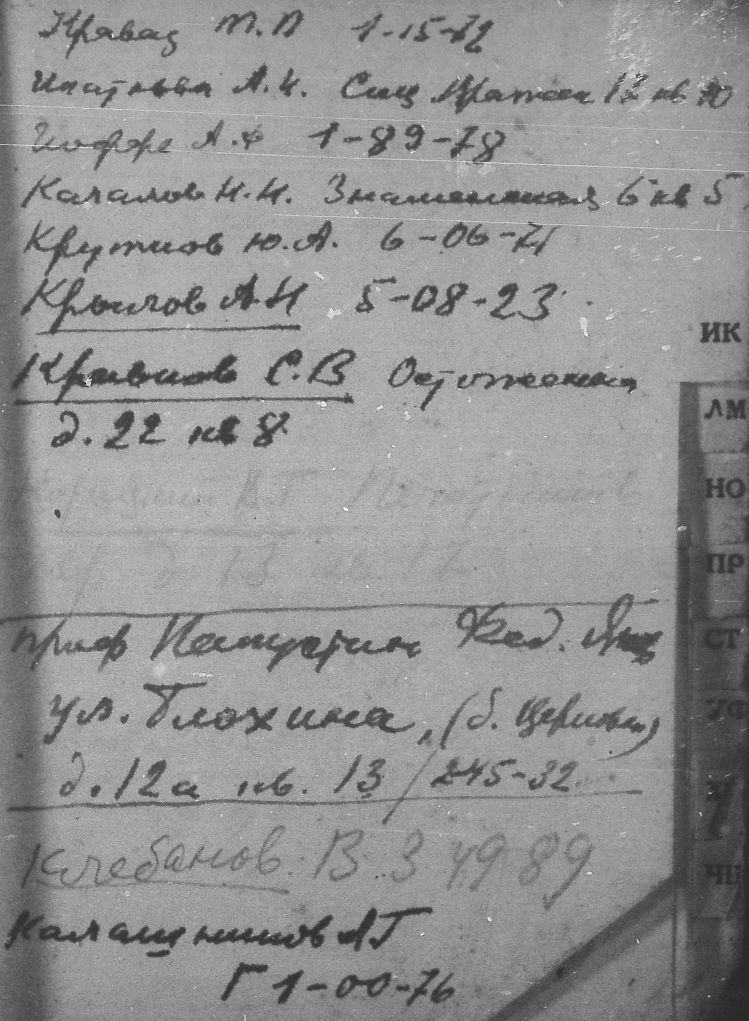 Кравец Т.П 1-15-72
Игнатьева А.И. Сиц 12 кв 10
Иоффе А.Ф 1-89-78
Качалов Н.Н. Знаменская 6 кв 5
Крутков Ю.А. 6-06-71
Крылов АН 5-08-23
Кравков С.В Остоженка
д. 22 кв 8
В.Г
д 13 кв 17
проф Капустин Фед. Як
ул. Блохина, (б. Церковн)
д. 12а кв. 13 / 245-32
Клебанов В 3 49 89
Калашников АГ
Г 1-00-76
ИК
ЛМ
НО
ПР
СТ
УФ
ЧШ